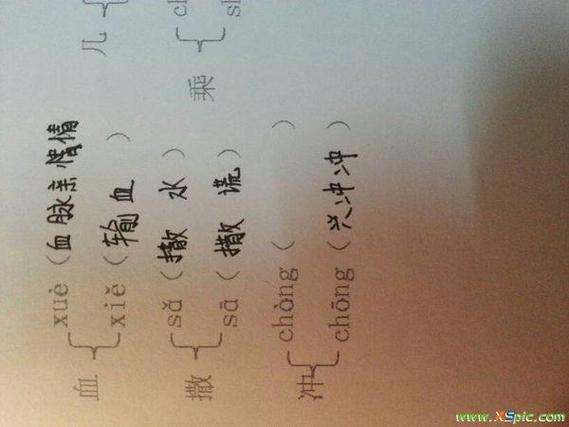 xuè（血脉亲情
血
xiě（输血）
几
sǎ（撒 水）
ch
撒
乘
sā（撒 谎）
sh
chòng（ ）
冲
chōng（兴冲冲）
www.XSpic.com